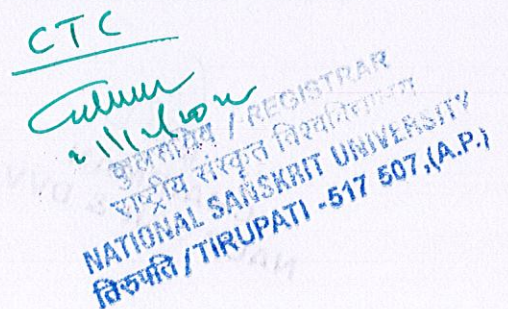 CTC
कुलसचिव / REGISTRAR
राष्ट्रीय संस्कृत विश्वविद्यालय
NATIONAL SANSKRIT UNIVERSITY
तिरुपति / TIRUPATI - 517 507,(A.P.)